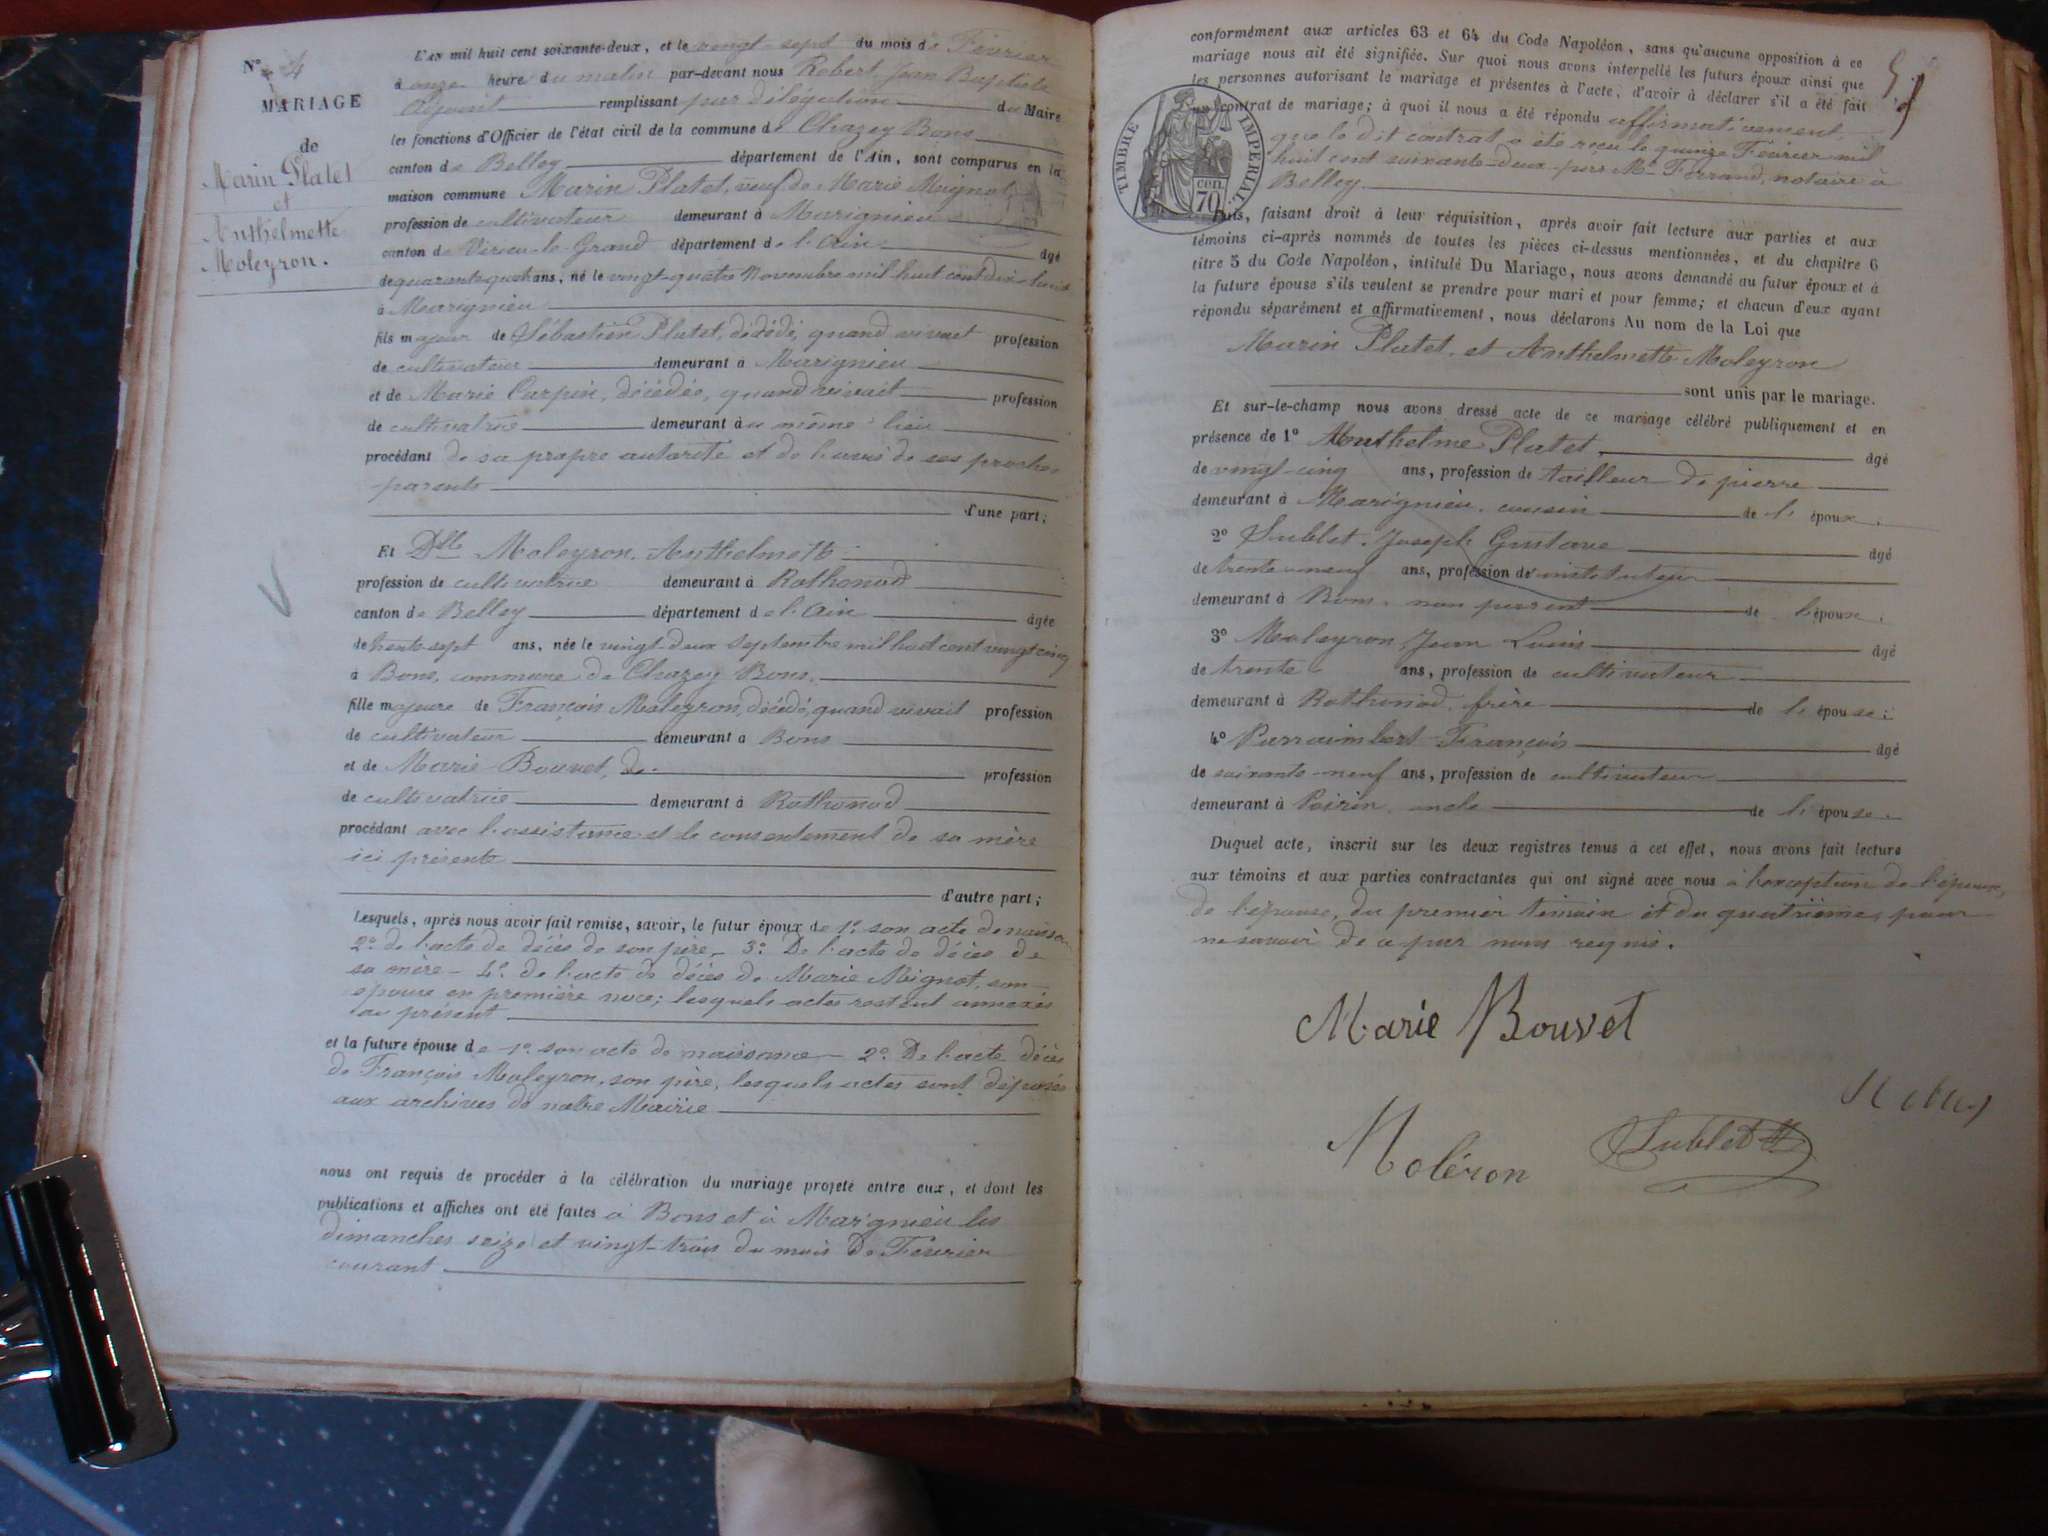 N° 4
MARIAGE
de
Marin Platet
et
Anthelmette
Moleyron.
L'an mil huit cent soixante-deux, et le vingt-sept du mois de Février
à onze heure du matin par-devant nous Robert, Jean Baptiste
remplissant par délégation du Maire
les fonctions d'Officier de l'état civil de la commune de Chazey Bons
canton de Belley département de l'Ain, sont comparus en la
maison commune Marin Platet, veuf de Marie Mignot
profession de cultivateur demeurant à Marignieu
canton de Virieu-le-Grand département de l'Ain âgé
de quarante quatre ans, né le vingt-quatre Novembre mil huit cent dix-huit
à Marignieu
fils majeur de Sébastien Platet, décédé, quand vivait profession
de cultivateur demeurant à Marignieu
et de Marie Carpin, décédée, quand vivait profession
de cultivatrice demeurant au même lieu
procédant de sa propre autorité et de l'avis de ses proches
parents
d'une part;
Et Dlle Moleyron, Anthelmette
profession de cultivatrice demeurant à Rothonod
canton de Belley département de l'Ain âgée
de trente-sept ans, née le vingt-deux septembre mil huit cent vingt cinq
à Bons, commune de Chazey Bons,
fille majeure de François Moleyron, décédé, quand vivait profession
de cultivateur demeurant à Bons
et de Marie Bouvet, de profession
de cultivatrice demeurant à Rothonod
procédant avec l'assistance et le consentement de sa mère
ici présente
d'autre part;
Lesquels, après nous avoir fait remise, savoir, le futur époux de 1° son acte de naissance
2° de l'acte de décès de son père, 3° De l'acte de décès de
sa mère - 4° de l'acte de décès de Marie Mignot, son
épouse en première noce; lesquels actes restent annexés
au présent
et la future épouse de 1° son acte de naissance - 2° De l'acte décès
de François Moleyron, son père, lesquels actes sont déposés
aux archives de notre Mairie
nous ont requis de procéder à la célébration du mariage projeté entre eux, et dont les
publications et affiches ont été faites à Bons et à Marignieu les
dimanches seize et vingt-trois du mois de Février
courant
conformément aux articles 63 et 64 du Code Napoléon, sans qu'aucune opposition à ce
mariage nous ait été signifiée. Sur quoi nous avons interpellé les futurs époux ainsi que
les personnes autorisant le mariage et présentes à l'acte, d'avoir à déclarer s'il a été fait
contrat de mariage; à quoi il nous a été répondu affirmativement,
que le dit contrat a été reçu le quinze Février mil
huit cent soixante-deux par Me Ferrand, notaire à
Belley
TIMBRE IMPERIAL
70 cen.
Puis, faisant droit à leur réquisition, après avoir fait lecture aux parties et aux
témoins ci-après nommés de toutes les pièces ci-dessus mentionnées, et du chapitre 6
titre 5 du Code Napoléon, intitulé Du Mariage, nous avons demandé au futur époux et à
la future épouse s'ils veulent se prendre pour mari et pour femme; et chacun d'eux ayant
répondu séparément et affirmativement, nous déclarons Au nom de la Loi que
Marin Platet, et Anthelmette Moleyron
sont unis par le mariage.
Et sur-le-champ nous avons dressé acte de ce mariage célébré publiquement et en
présence de 1° Anthelme Platet, âgé
de vingt-cinq ans, profession de tailleur de pierre
demeurant à Marignieu, cousin de l'époux;
2° Sublet, Joseph Gustave âgé
de trente-neuf ans, profession d'instituteur
demeurant à Bons, non parent de l'épouse;
3° Moleyron, Jean Louis âgé
de trente ans, profession de cultivateur
demeurant à Rothonod, frère de l'épouse;
4° Parraimbert François âgé
de soixante-neuf ans, profession de cultivateur
demeurant à Peirin, oncle de l'épouse.
Duquel acte, inscrit sur les deux registres tenus à cet effet, nous avons fait lecture
aux témoins et aux parties contractantes qui ont signé avec nous à l'exception de l'époux,
de l'épouse, du premier témoin et du quatrième, pour
ne savoir de ce par nous requis.
Marie Bouvet
Moléron
Sublet